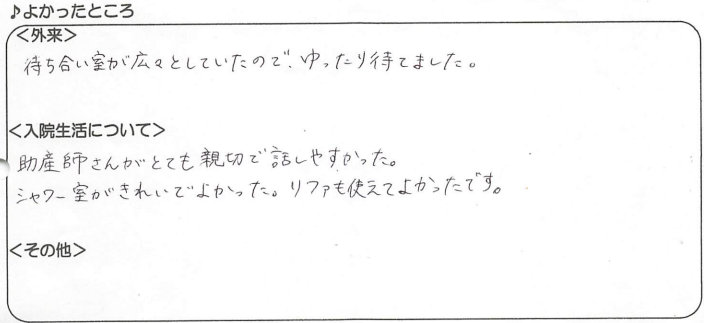 ♪よかったところ
＜外来＞
待ち合い室が広々としていたので、ゆったり待てました。
＜入院生活について＞
助産師さんがとても親切で話しやすかった。
シャワー室がきれいでよかった。リファも使えてよかったです。
＜その他＞